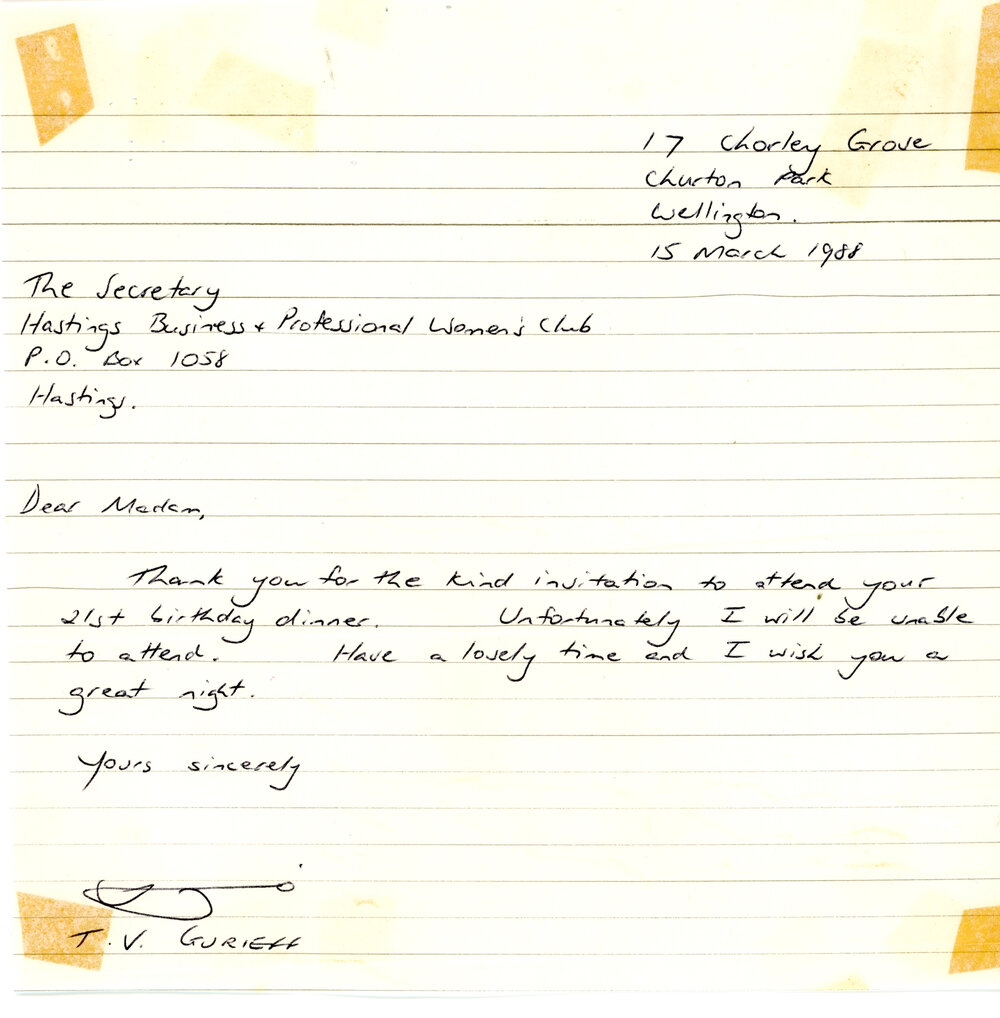 17 Chorley Grove
Churton Park
Wellington.
15 March 1988
The Secretary
Hastings Business & Professional Women's Club
P.O. Box 1058
Hastings.
Dear Madam,
Thank you for the kind invitation to attend your
21st birthday dinner. Unfortunately I will be unable
to attend. Have a lovely time and I wish you a
great night.
Yours sincerely
T.V. GURIEFF